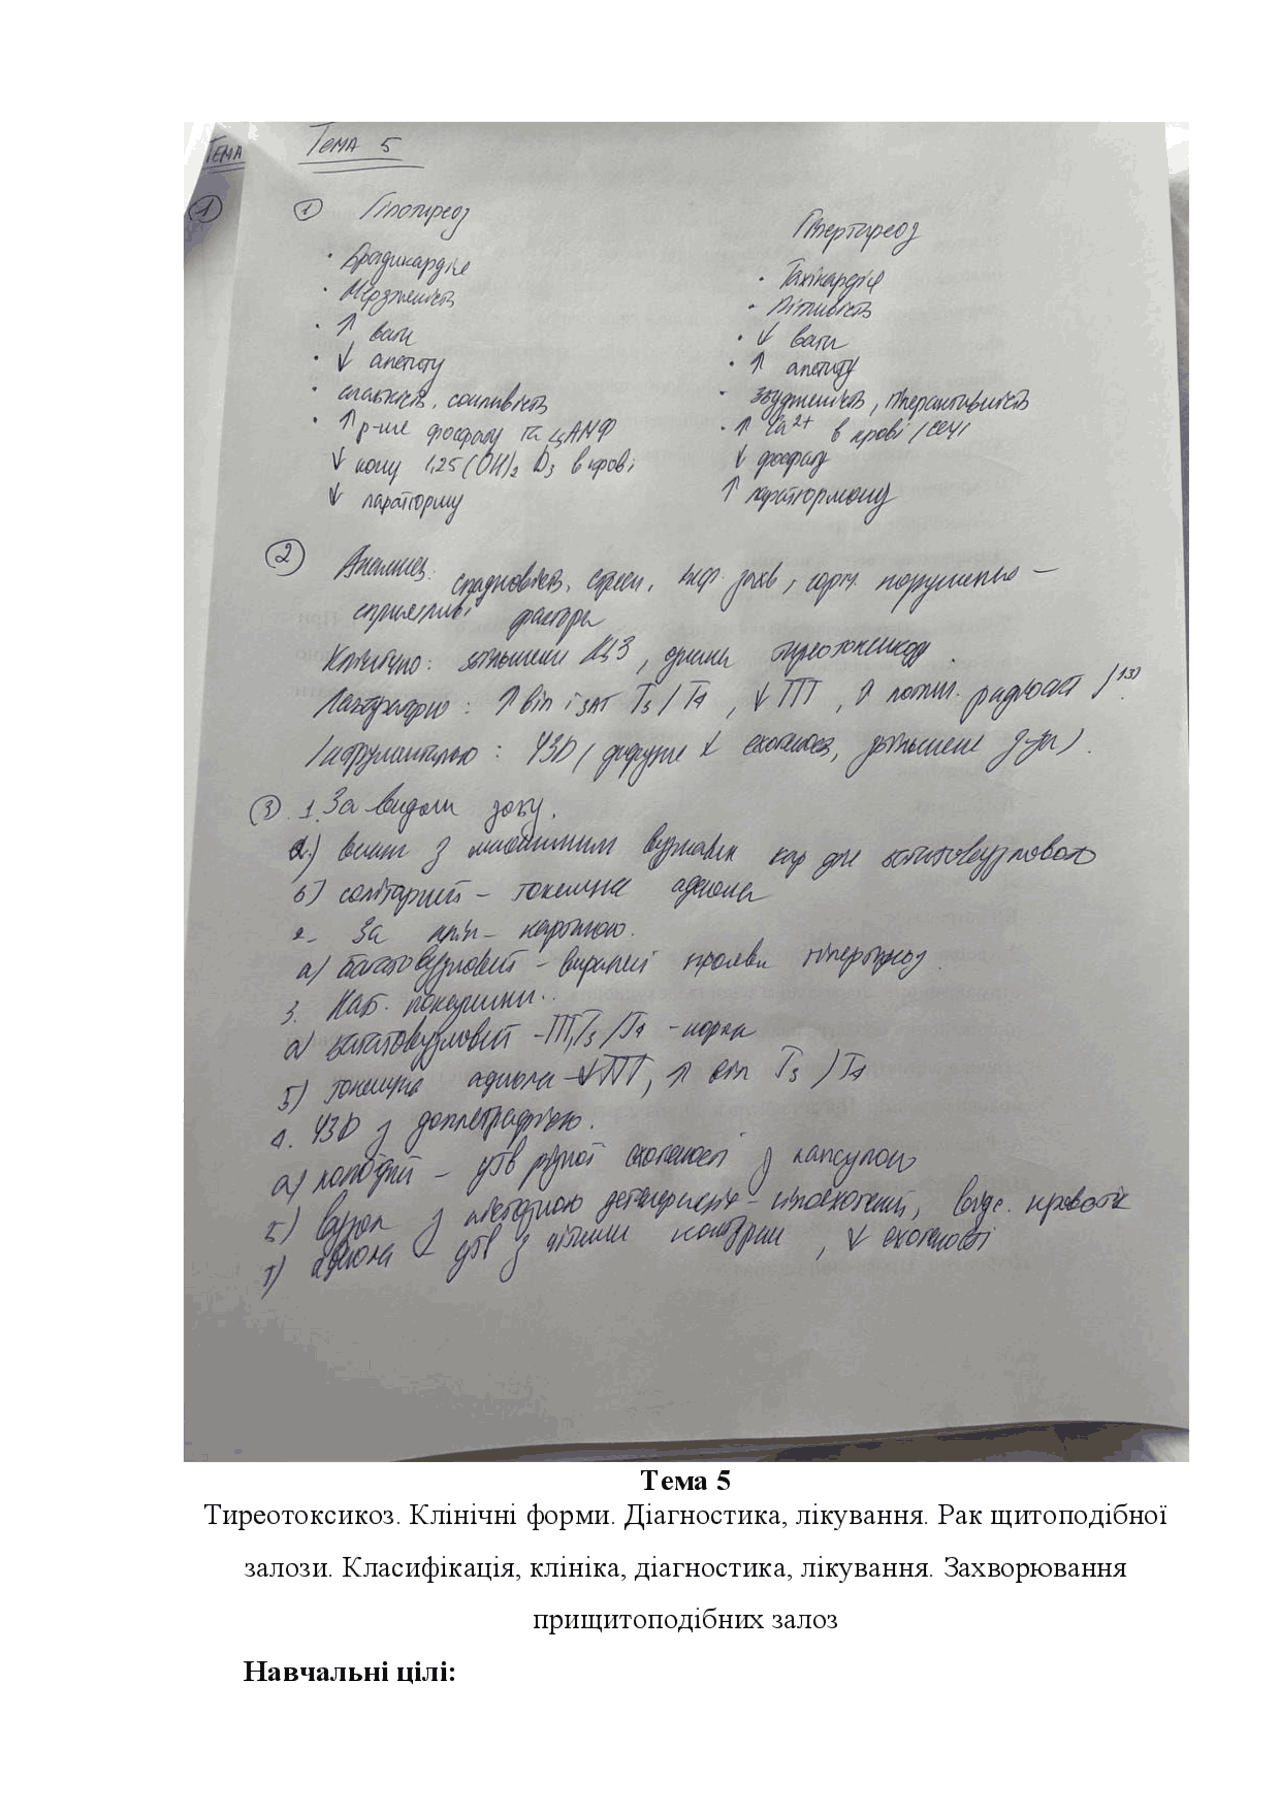 Тема
Тема 5
1
1 Гіпотиреоз
Гіпертиреоз
· Брадикардія
· Мерзлякуватість
· ↑ ваги
· ↓ апетиту
· слабкість, сонливість
· ↑ р-ня фосфату та цАМФ
↓ конц 1,25(OH)₂ D₃ в крові
↓ паратгорму
· Тахікардія
· Пітливість
· ↓ ваги
· ↑ апетиту
· збудженість, гіперактивність
· ↑ Ca²⁺ в крові / сечі
↓ фосфату
↑ паратгормону
2 Анамнез: спадковість, стреси, інф. захв, горм. порушення –
сприятливі фактори
Клінічно: збільшення ЩЗ, ознаки тиреотоксикозу
Лабораторно: ↑ віл і заг T₃ / T₄, ↓ ТТГ, ↑ поглин. радіоакт I¹³¹
Інструментально: УЗД ( дифузне ↓ ехогенноз, збільшене з-за ).
3. 1. За видом зобу.
а) вели з множинним вузлами хар для багатовузлового
б) солітарний – токсична аденома
2. За клін – картиною.
а) багатовузловий – виражені прояви гіпертиреоз
3. Лаб. показники.
а) багатовузловий – ТТГ, T₃ / T₄ – норма
б) токсична аденома – ↓ ТТГ, ↑ віл T₃ / T₄
4. УЗД з доплерографією.
а) колоїдний – утв різної ехогенності з капсулою
б) вузол з кістозною дегенерацією – гіпоехогенний, відс. кровотік
в) аденома – утв з чіткими контурами, ↓ ехогенності
Тема 5
Тиреотоксикоз. Клінічні форми. Діагностика, лікування. Рак щитоподібної
залози. Класифікація, клініка, діагностика, лікування. Захворювання
прищитоподібних залоз
Навчальні цілі: